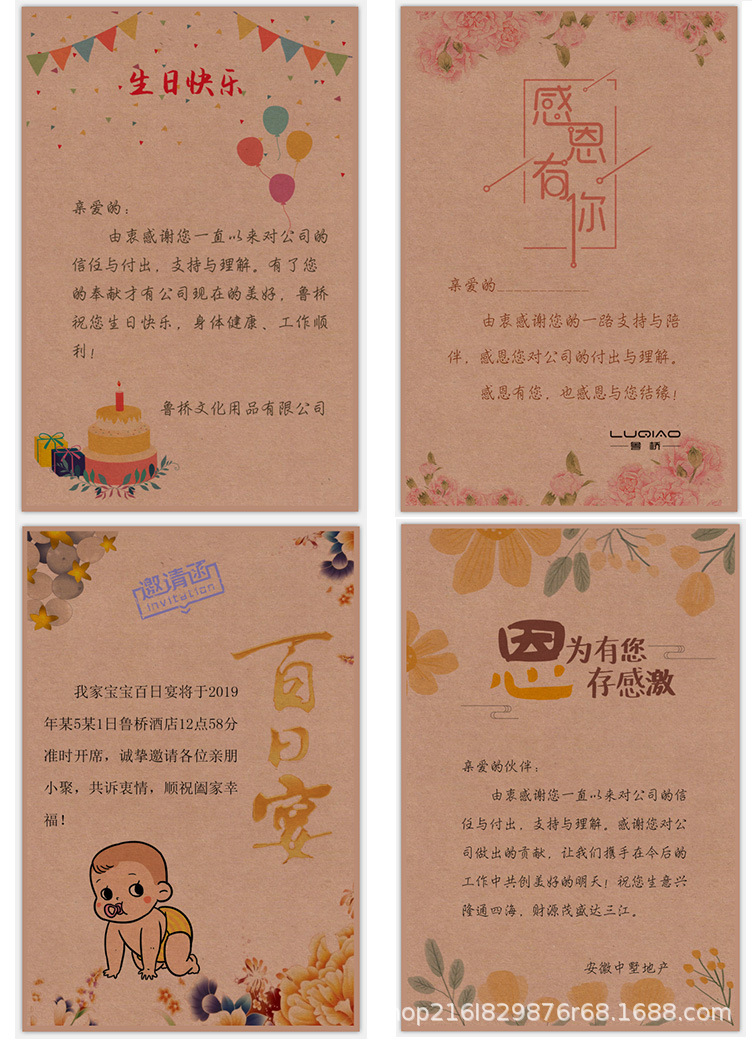 生日快乐
亲爱的：
由衷感谢您一直以来对公司的
信任与付出，支持与理解。有了您
的奉献才有公司现在的美好，鲁桥
祝您生日快乐，身体健康、工作顺
利！
鲁桥文化用品有限公司
感恩有你
亲爱的
由衷感谢您的一路支持与陪
伴，感恩您对公司的付出与理解。
感恩有您，也感恩与您结缘！
LUQIAO
鲁桥
邀请函
invitation
百日宴
我家宝宝百日宴将于2019
年某5某1日鲁桥酒店12点58分
准时开席，诚挚邀请各位亲朋
小聚，共诉衷情，顺祝阖家幸
福！
恩
为有您
存感激
亲爱的伙伴：
由衷感谢您一直以来对公司的信
任与付出，支持与理解。感谢您对公
司做出的贡献，让我们携手在今后的
工作中共创美好的明天！祝您生意兴
隆通四海，财源茂盛达三江。
安徽中墅地产
op216l829876r68.1688.com